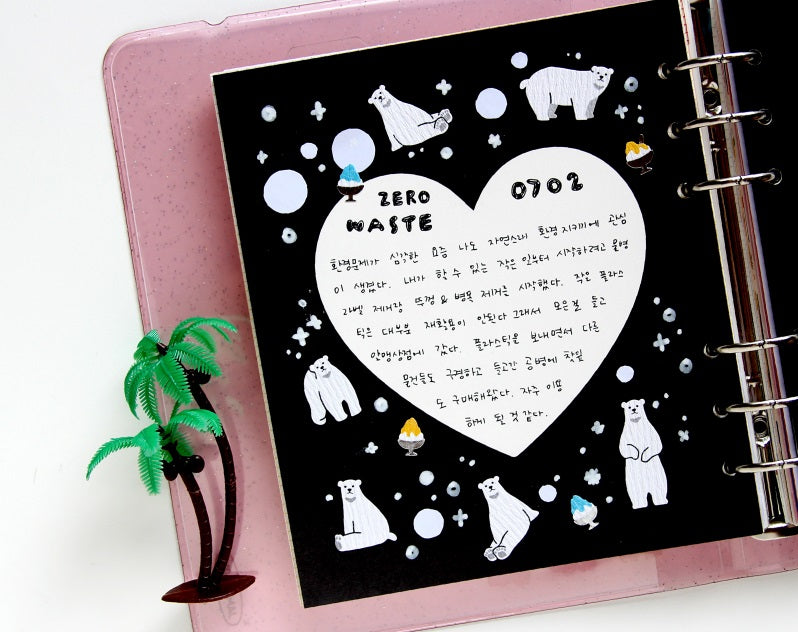 ZERO
WASTE
0702
환경문제가 심각한 요즘 나도 자연스레 환경 지키기에 관심
이 생겼다. 내가 할 수 있는 작은 일부터 시작하려고 물병
라벨 제거랑 뚜껑 & 병목 제거를 시작했다. 작은 플라스
틱은 대부분 재활용이 안된다 그래서 모은걸 들고
알맹상점에 갔다. 플라스틱을 보내면서 다른
물건들도 구경하고 들고간 공병에 착일
도 구매해왔다. 자주 이용
하게 될 것 같다.